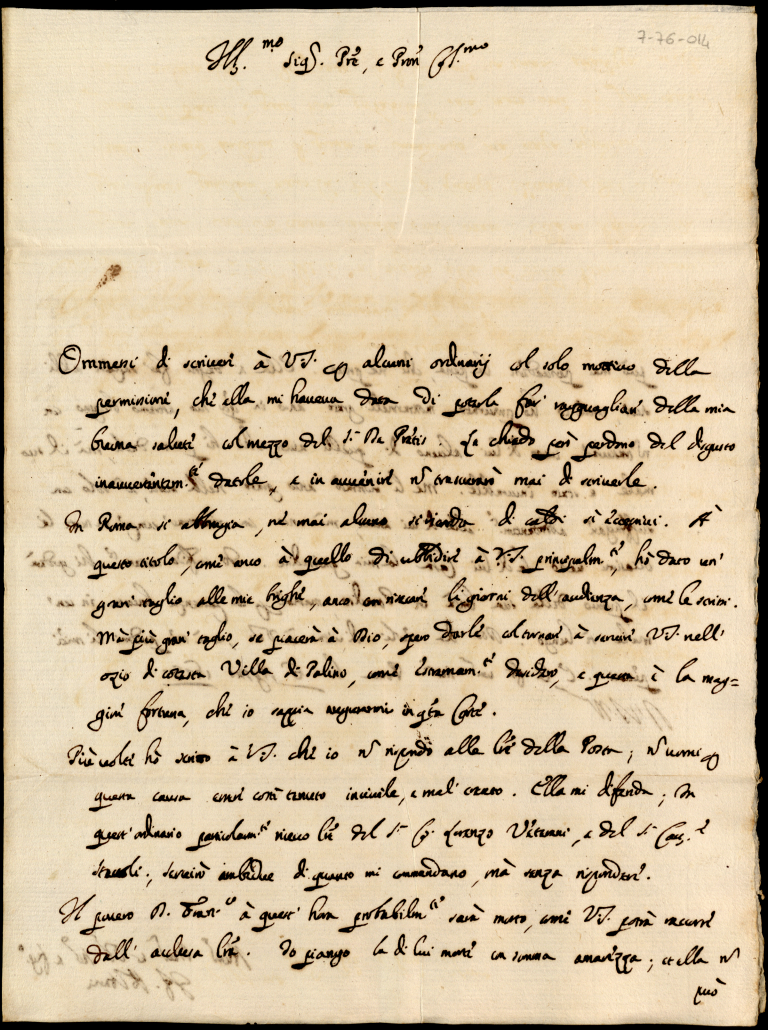 7-76-014
Ill.mo Sig.r Pre, e Pron Col.mo
Ommessi di scrivere à V.S. p alcuni ordinarij col solo motivo della
permissione, che ella mi haveva data di poterla far ragguagliare della mia
buona salute col mezzo del S.r De Pretis. Le chiedo però perdono del disgusto
inavvertentem.te datole, e in avvenire nõ trascurarò mai di scriverle.
In Roma si abbrugia, ne mai alcuno si ricorda di caldi sì eccessivi. À
questo titolo, come anco à quello di ubbidire à V.S. principalm.te, hò dato un'
gran' taglio alle mie brighe, anco con risecare li giorni dell'audienza, come le scrissi.
Mà più gran' taglio, se piacerà à Dio, spero darle col tornare à servire V.S. nell'
ozio di cotesta Villa di Palino, come estremam.te desidero, e questa è la mag=
gior fortuna, che io sappia augurarmi in qta Corte.
Più volte hò scritto à V.S. che io nõ rispondo alle lre della Posta; nõ vorrei p
questa causa esser costì tenuto incivile, e mal' creato. Ella mi difenda; In
quest'ordinario particolarm.te ricevo lre del S.r Lorenzo Vettori, e del S.r Cav.re
; servirò ambidue di quanto mi commandano, mà senza rispondere.
Il povero D. à quest' hora probabilm.te sarà morto, come V.S. potrà raccorre
dall' acclusa lra. Io piango la di lui morte con somma amarezza; et ella nõ
può